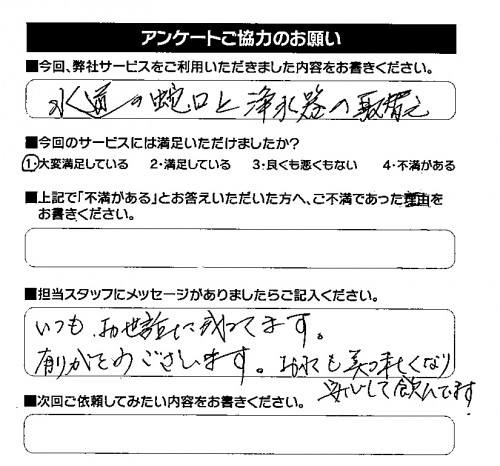 アンケートご協力のお願い
■今回、弊社サービスをご利用いただきました内容をお書きください。
水道の蛇口と浄水器の取替え
■今回のサービスには満足いただけましたか?
1・大変満足している 2・満足している 3・良くも悪くもない 4・不満がある
■上記で「不満がある」とお答えいただいた方へ、ご不満であった理由を
お書きください。
■担当スタッフにメッセージがありましたらご記入ください。
いつもお世話に成ってます。
有りがとのございます。お水も美味しくなり
安心して飲んでます
■次回ご依頼してみたい内容をお書きください。